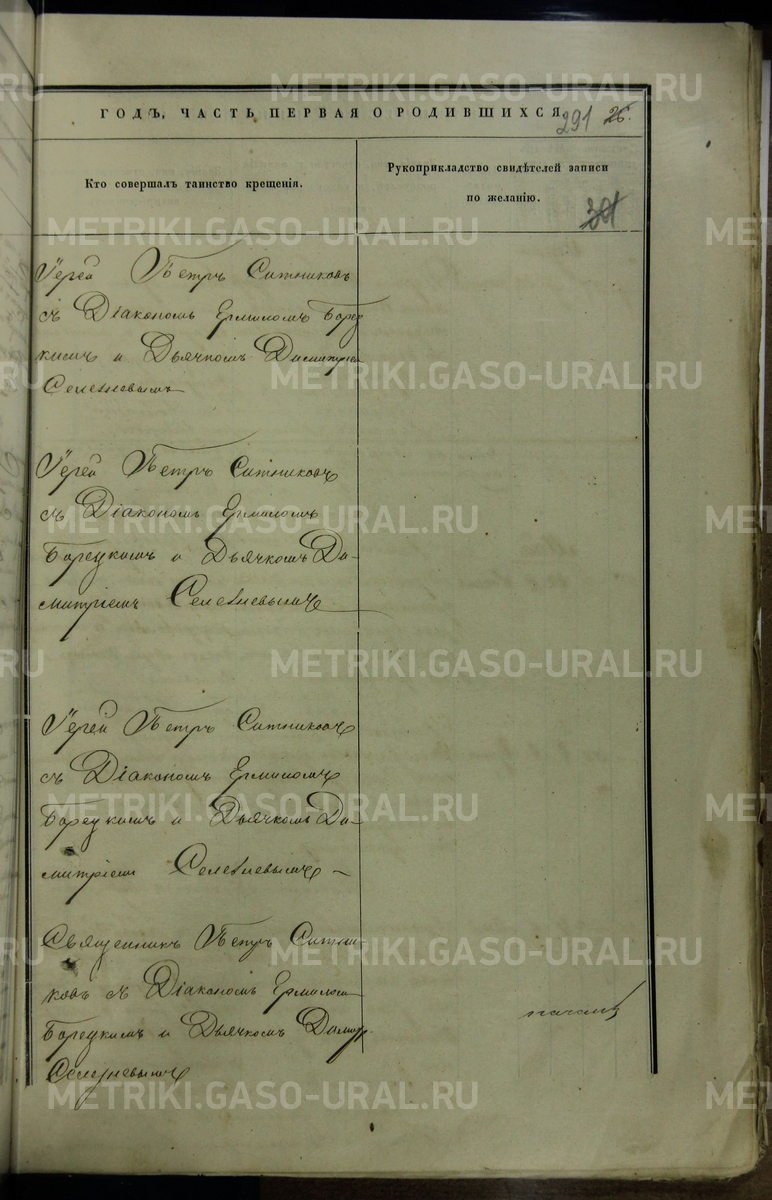 ГОДЪ, ЧАСТЬ ПЕРВАЯ О РОДИВШИХСЯ
291 26.
Кто совершалъ таинство крещенія.
Рукоприкладство свидѣтелей записи
по желанію.
Іерей Петръ Ситниковъ
съ Діакономъ Ермиломъ Борец
кимъ и Дьячкомъ Димитріем
Селезневымъ
Іерей Петръ Ситниковъ
съ Діакономъ Ермиломъ
Борецкимъ и Дьячкомъ Ди-
митріемъ Селезневымъ
Іерей Петръ Ситниковъ
съ Діакономъ Ермиломъ
Борецкимъ и Дьячкомъ Ди-
митріемъ Селезневымъ
Священникъ Петръ Ситни-
ковъ съ Діакономъ Ермилом
Борецкимъ и Дьячкомъ Димитр.
Селезневымъ
METRIKI.GASO-URAL.RU